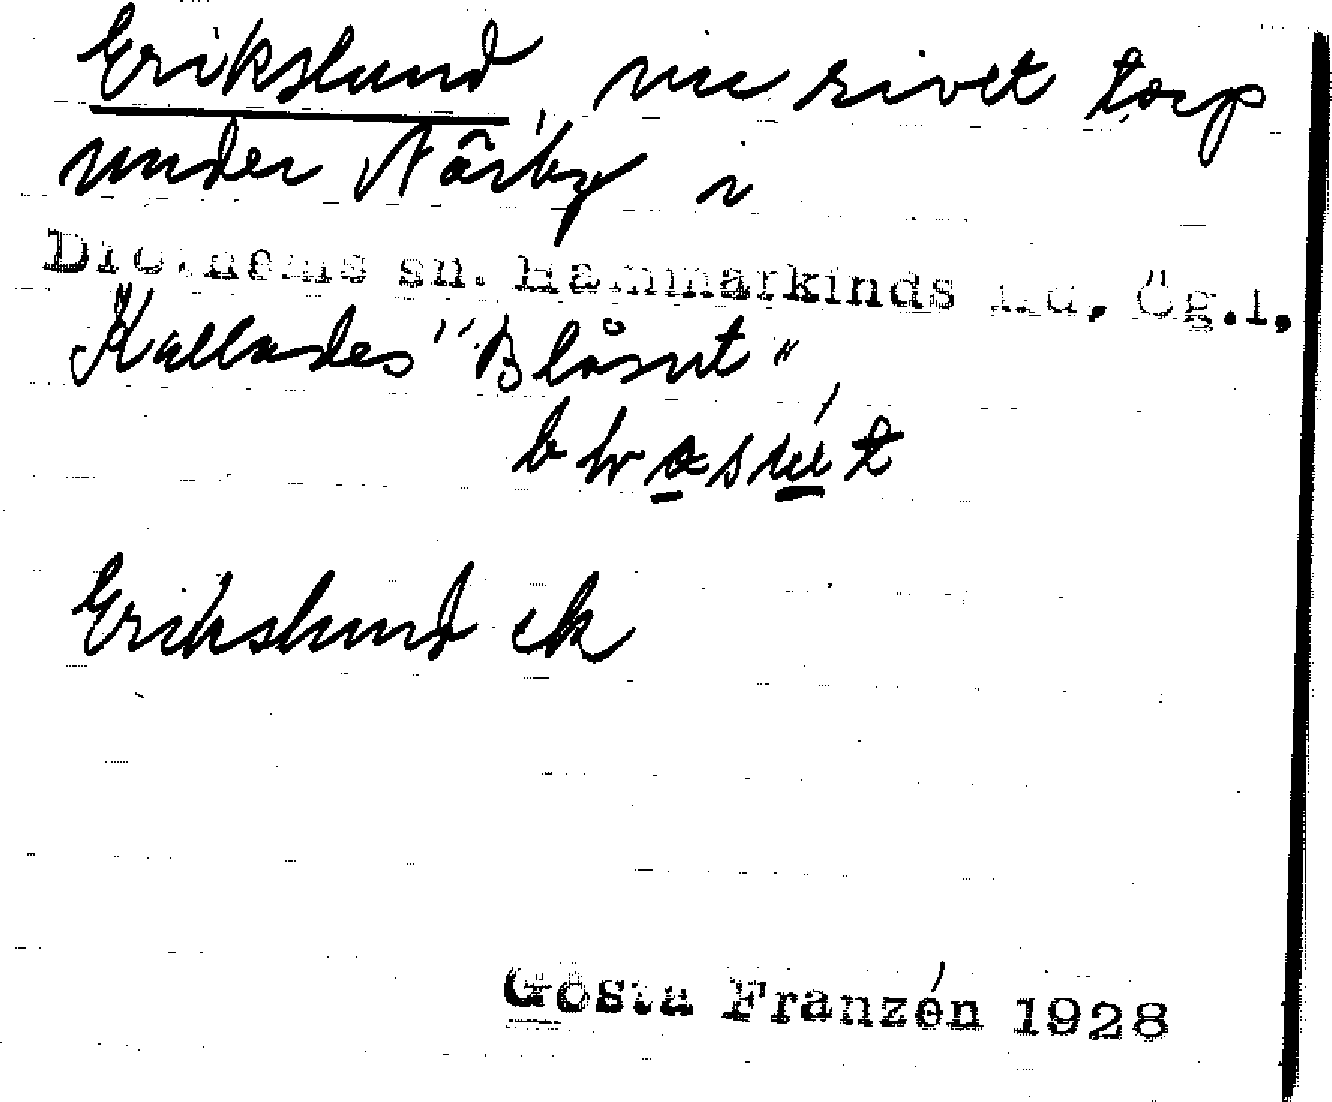 Erikslund, nu rivet torp
under Närby i
Drothems sn. Hammarkinds hd. Ög.l.
Kallades "Blåsut"
Erikslund ek
Gösta Franzén 1928